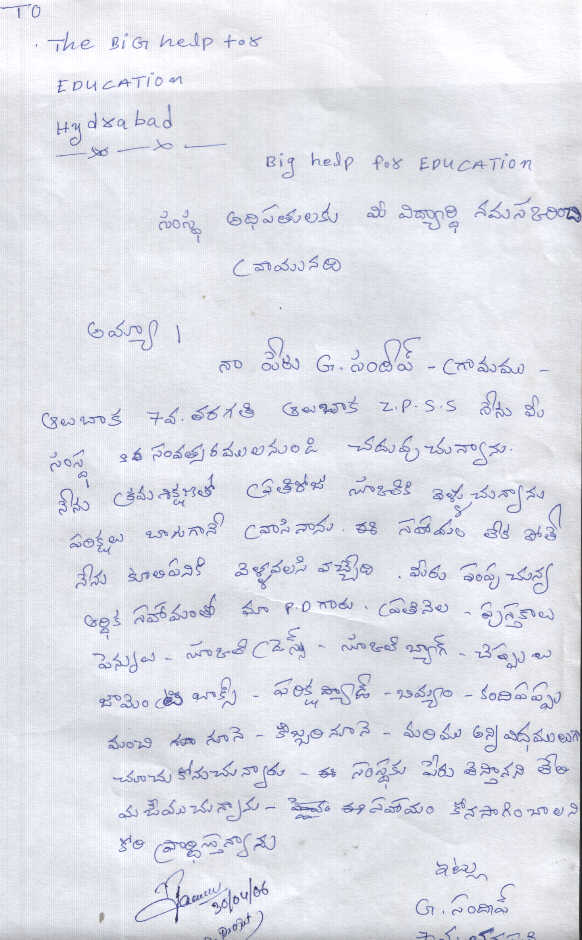 TO
The BIG help for
EDUCATION
Hydrabad
Big help for EDUCATION
సంస్థ అధిపతులకు మీ విద్యార్థి నమస్కరించి
వ్రాయునది
అమ్యా ।
నా పేరు G. సందీప్ - గ్రామము -
ఆలుబాక 7వ. తరగతి ఆలుబాక Z.P.S.S నేను మీ
సంస్థ సంవత్సరములనుండి చదువుచున్నాను.
నేను క్రమశిక్షణతో ప్రతిరోజు స్కూలుకి వెళ్ళుచున్నాను
పరిక్షలు బాగుగానే వ్రాసినాను. ఈ సహాయం లేక పోతే
నేను కూలిపనికి వెళ్ళవలసి వచ్చేది. మీరు పంపుచున్న
ఆర్థిక సహాయంతో మా P.D గారు. ప్రతినెల - పుస్తకాలు
పెన్నులు - స్కూల్ డ్రెస్స్ - స్కూల్ బ్యాగ్ - చెప్పులు
జామెంట్రి బాక్స్ - పరిక్ష ప్యాడ్ - బియ్యం - కందిపప్పు
మంచి నూనె - కొబ్బరి నూనె - మరియు అన్ని విధములుగా
చూచుకోనుచున్నారు - ఈ సంస్థకు పేరు తెస్తానని తెలి
యజేయుచున్నాను - ఈ సహాయం కోనసాగించాలని
కోరి ప్రార్థిస్తున్నాను
30/04/06
ఇట్లు
G. సందీప్